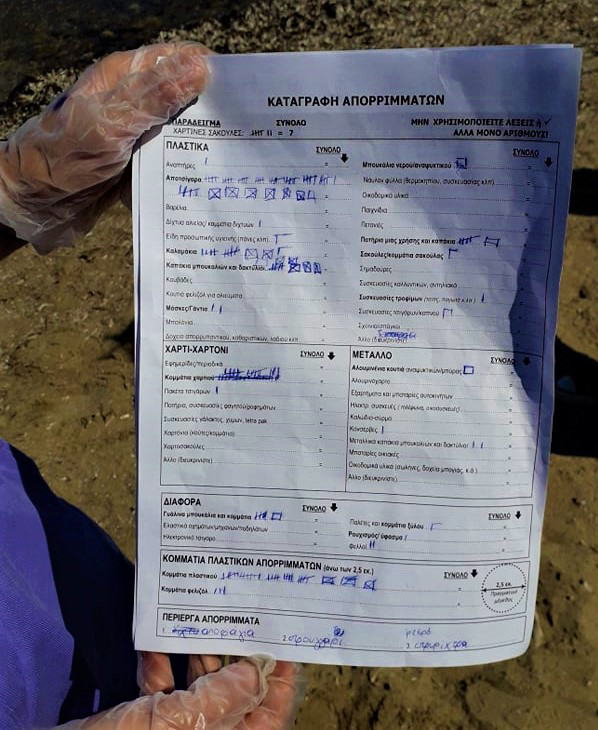 ΚΑΤΑΓΡΑΦΗ ΑΠΟΡΡΙΜΜΑΤΩΝ
ΠΑΡΑΔΕΙΓΜΑ ΣΥΝΟΛΟ
ΧΑΡΤΙΝΕΣ ΣΑΚΟΥΛΕΣ: = 7
ΜΗΝ ΧΡΗΣΙΜΟΠΟΙΕΙΤΕ ΛΕΞΕΙΣ ή ✓
ΑΛΛΑ ΜΟΝΟ ΑΡΙΘΜΟΥΣ!
ΠΛΑΣΤΙΚΑ
ΣΥΝΟΛΟ
Αναπτήρες
Αποτσίγαρα
Βαρέλια
Δίχτυα αλιείας/ κομμάτια διχτυών
Είδη προσωπικής υγιεινής (πάνες κλπ)
Καλαμάκια
Καπάκια μπουκαλιών και δακτύλιοι
Κουβάδες
Κουτιά φελιζόλ για αλιεύματα
Μάσκες/Γάντια
Μπαλόνια
Δοχεία απορρυπαντικού, καθαριστικών, λαδιού κλπ
ΣΥΝΟΛΟ
Μπουκάλια νερού/αναψυκτικού
Νάυλον φύλλα (θερμοκηπίου, συσκευασίας κλπ)
Οικοδομικά υλικά
Παιχνίδια
Πετονιές
Ποτήρια μιας χρήσης και καπάκια
Σακούλες/κομμάτια σακούλας
Σημαδούρες
Συσκευασίες καλλυντικών, αντηλιακά
Συσκευασίες τροφίμων
Συσκευασίες τσιγάρων/καπνού
Σχοινιά/σπάγγοι
Άλλο (διευκρινίστε)
ΧΑΡΤΙ-ΧΑΡΤΟΝΙ
ΣΥΝΟΛΟ
Εφημερίδες/περιοδικά
Κομμάτια χαρτιού
Πακέτα τσιγάρων
Ποτήρια, συσκευασίες φαγητού/ροφημάτων
Συσκευασίες γάλακτος, χυμών, tetra pak
Χαρτόνια (κούτες/κομμάτια)
Χαρτοσακούλες
Άλλο (διευκρινίστε)
ΜΕΤΑΛΛΟ
ΣΥΝΟΛΟ
Αλουμινένια κουτιά αναψυκτικών/μπύρας
Αλουμινόχαρτο
Εξαρτήματα και μπαταρίες αυτοκινήτων
Ηλεκτρ. συσκευές
Καλώδια-σύρμα
Κονσέρβες
Μεταλλικά καπάκια μπουκαλιών και δακτύλιοι
Μπαταρίες οικιακές
Οικοδομικά υλικά (σωλήνες, δοχεία μπογιάς, κ.ά.)
Άλλο (διευκρινίστε)
ΔΙΑΦΟΡΑ
ΣΥΝΟΛΟ
Γυάλινα μπουκάλια και κομμάτια
Ελαστικά οχημάτων/μηχανών/ποδηλάτων
Ηλεκτρονικό τσιγάρο
ΣΥΝΟΛΟ
Παλέτες και κομμάτια ξύλου
Ρουχισμός/ύφασμα
Φελλοί
ΚΟΜΜΑΤΙΑ ΠΛΑΣΤΙΚΩΝ ΑΠΟΡΡΙΜΜΑΤΩΝ (άνω των 2,5 εκ.)
ΣΥΝΟΛΟ
Κομμάτια πλαστικού
Κομμάτια φελιζόλ
2,5 εκ.
Πραγματικό μέγεθος
ΠΕΡΙΕΡΓΑ ΑΠΟΡΡΙΜΜΑΤΑ
1. 2 σφουγγάρι 3